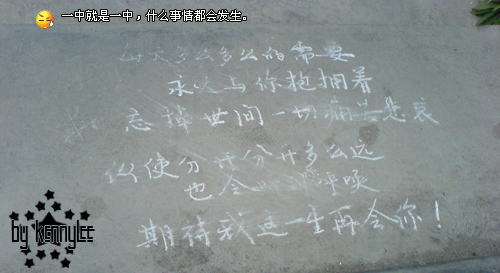 一中就是一中，什么事情都会发生。
每天多么多么的需要
永久与你抱拥着
忘掉世间一切痛苦悲哀
纵使分 分开多么远
也会 呼唤
期待我这一生再会你！
by kennylee